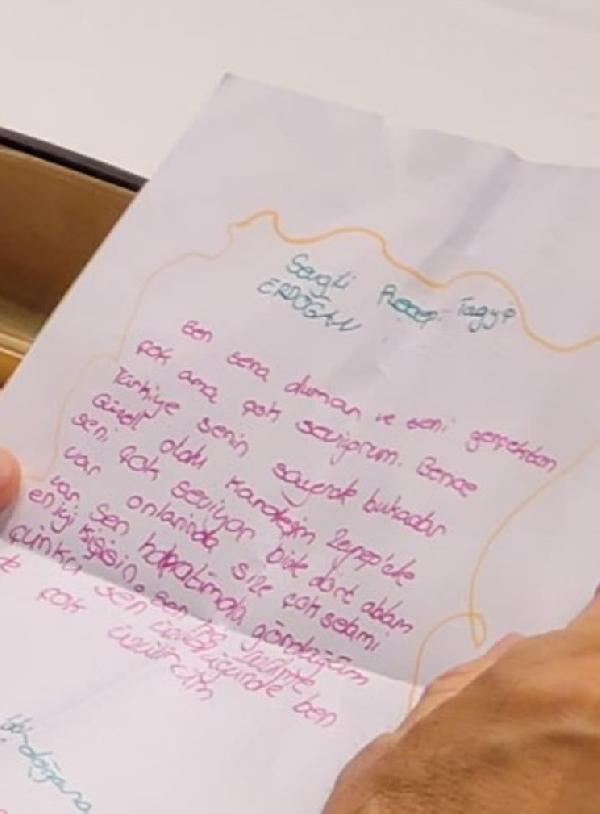 Sevgili Recep Tayyip
ERDOĞAN
Ben sena duman ve seni gerçekten
çok ama çok seviyorum. Bence
Türkiye senin sayende bukadar
Güzell oldu kardeşim Zeynep'de
seni çok seviyor bide dört ablam
var onlarında size çok selamı
var sen hayatımda gördüğüm
en iyi kişisin
çünkü sen
içinde ben
çok üzülürüm